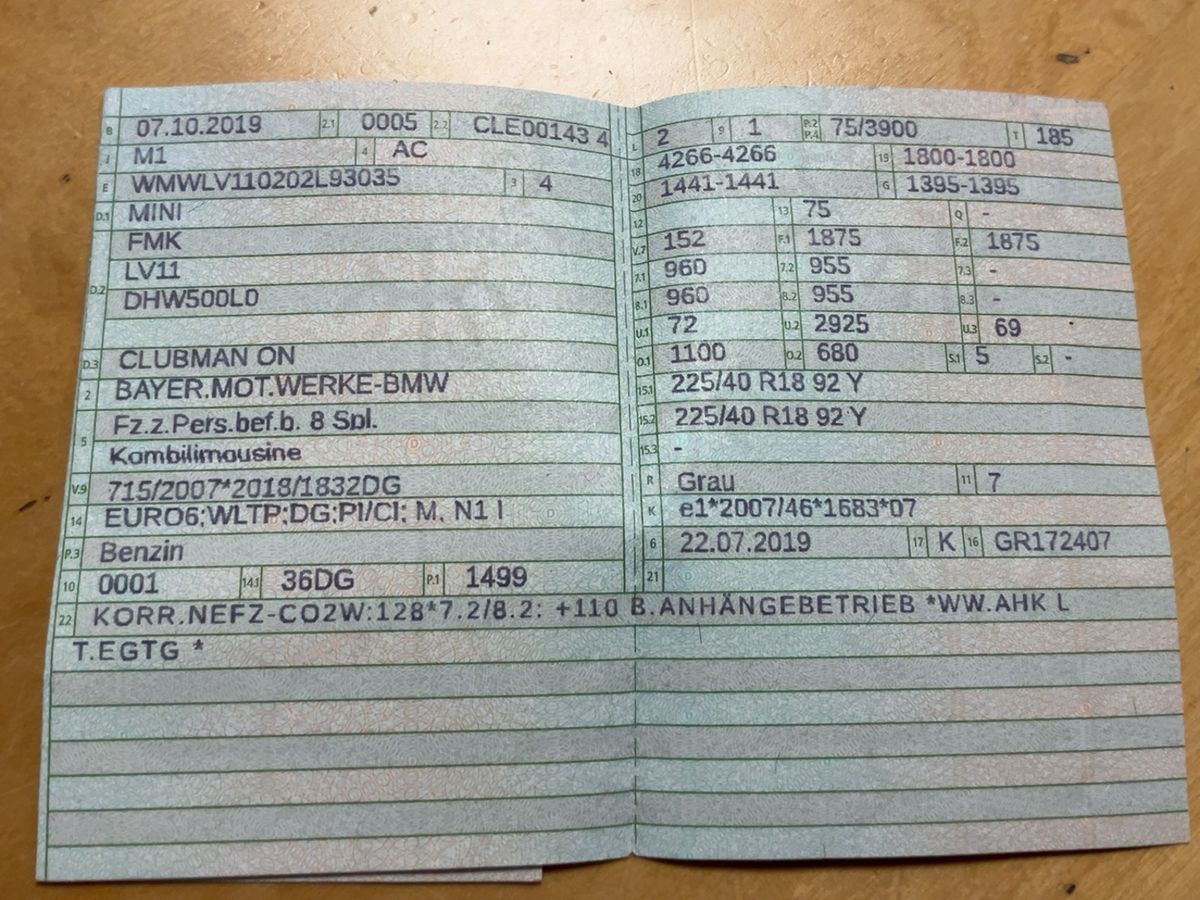 B 07.10.2019 2.1 0005 2.2 CLE00143 4
J M1 4 AC
E WMWLV110202L93035 3 4
D.1 MINI
D.2 FMK
LV11
DHW500L0
D.3 CLUBMAN ON
2 BAYER.MOT.WERKE-BMW
5 Fz.z.Pers.bef.b. 8 Spl.
Kombilimousine
V.9 715/2007*2018/1832DG
14 EURO6;WLTP;DG;PI/CI; M, N1 I
P.3 Benzin
10 0001 14.1 36DG P.1 1499
L 2 9 1 P.2 P.4 75/3900 T 185
18 4266-4266 19 1800-1800
20 1441-1441 G 1395-1395
12 13 75 Q -
V.7 152 F.1 1875 F.2 1875
7.1 960 7.2 955 7.3 -
8.1 960 8.2 955 8.3 -
U.1 72 U.2 2925 U.3 69
O.1 1100 O.2 680 S.1 5 S.2 -
15.1 225/40 R18 92 Y
15.2 225/40 R18 92 Y
15.3 -
R Grau 11 7
K e1*2007/46*1683*07
6 22.07.2019 17 K 16 GR172407
21
22 KORR.NEFZ-CO2W:128*7.2/8.2: +110 B.ANHÄNGEBETRIEB *WW.AHK L
T.EGTG *